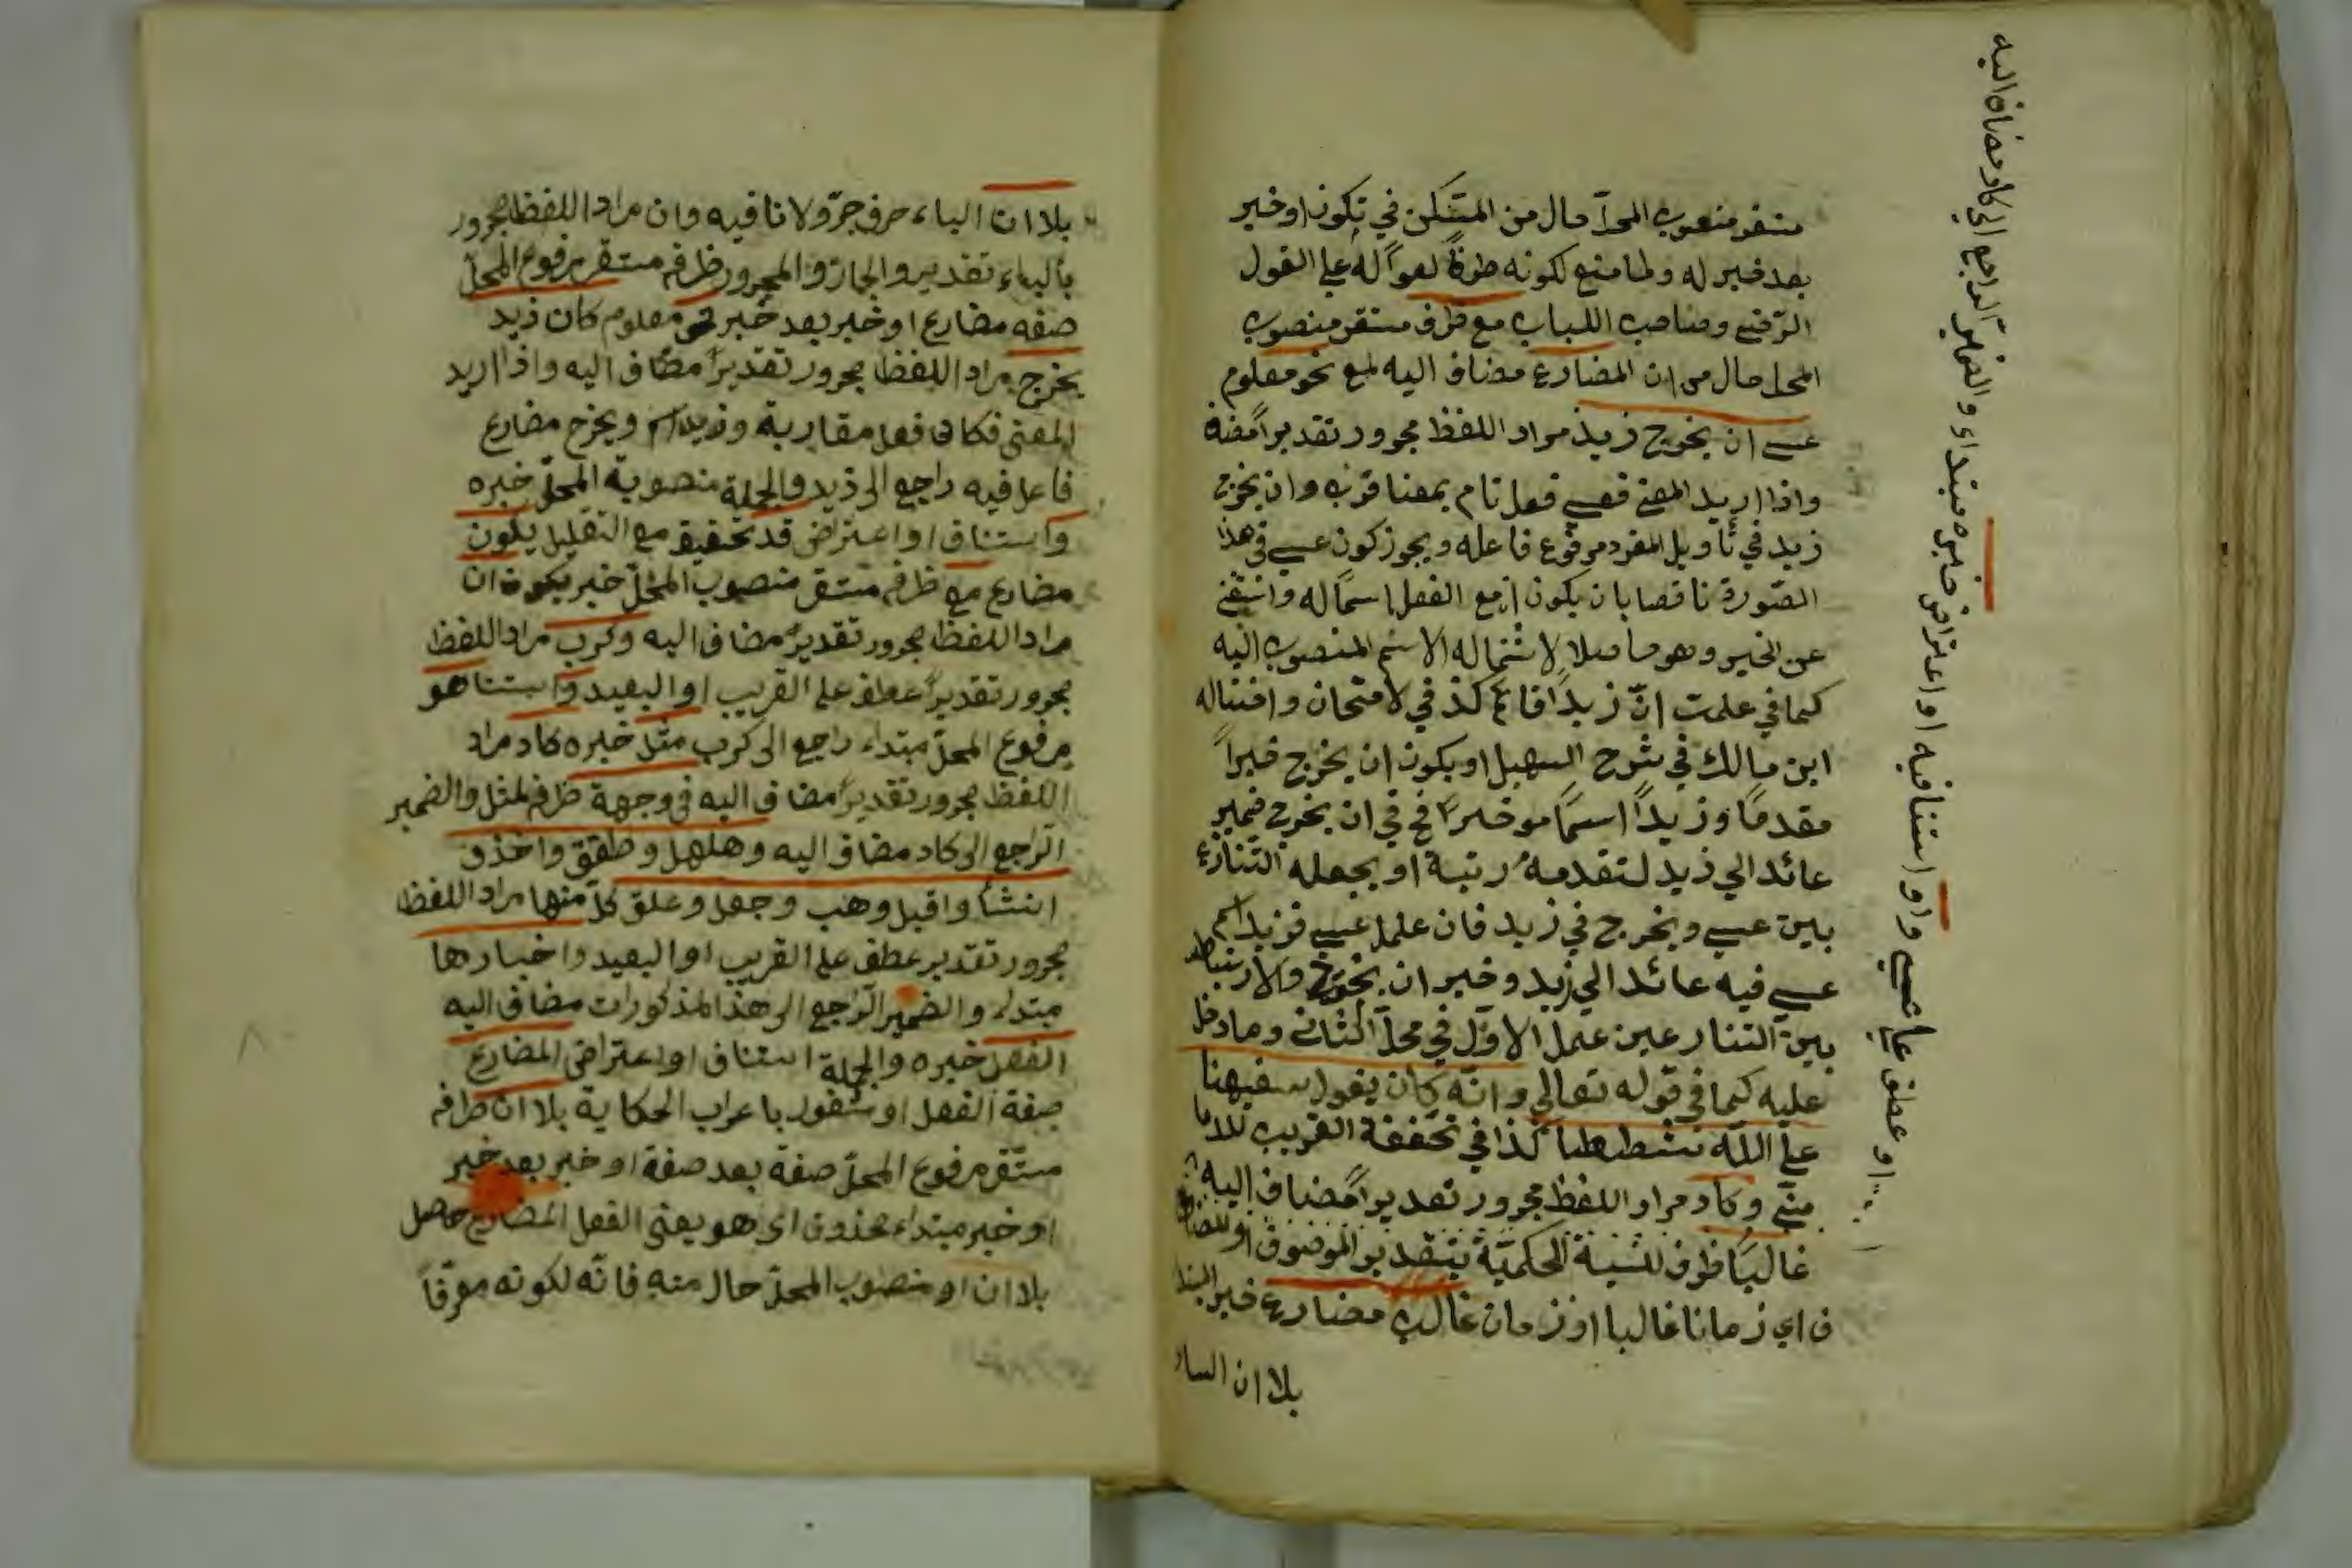 متقر منصوب المحل حال من المتكن في تكون او خبر
بعد خبر له ولما منع لكونه ظرفاً لغواً له علي القول
الرضي وصاحب اللباب مع ظرف مستقر منصوب
المحل حال من ان المضارع مضاف اليه لمع نحو معلوم
عسي ان يخرج زيد مراد اللفظ مجرور تقديراً مضه
واذا اريد المعني فعسي فعل تام بمعنا قرب وان يخرج
زيد في تأويل المفرد مرفوع فاعله ويجوز كون عسي في هذا
الصّورة ناقصا بان يكون ان مع الفعل اسماً له واستغني
عن الخبر وهو حاصلا لاشتماله الاسم المنصوب اليه
كما في علمت انّ زيداً قائم كذ في لامتحان واختاله
ابن مالك في شرح السهيل او يكون ان يخرج خبراً
مقدماً وزيداً اسماً موخراً فح في ان يخرج ضمير
عائد الي زيد لتقدمه رتبة او بجعله التنازع
بين عسي ويخرج في زيد فان علمل عسي فزيد اسم
عسي فيه عائد الي زيد وخبر ان يخرج والارتباط
بين التنارعين عمل الاوّل في محلّ الثاني وما دخل
عليه كما في قوله تعالي وانّه كان يقول سفيهنا
علي اللّه شططا كذا في تحفة القريب للدما
منّي وكاد مراد اللفظ مجرور تقديراً مضاف اليه
غالباً ظرف للنسبة الحكميّة بتقدير الموصوف او للمضا
ف اي زمانا غالبا او زمان غالب مضارع خبر المبتدا
بلا ان الباء
او عطف علي عسي واو استنافيه او اعتراض خبره مبتداء والضمير الراجع الي كاد مضاف اليه
بلا ان الباء حرف جرّ ولا نافيه وان مراد اللفظ مجرور
بالباء تقدير والجار والمجرور ظرف مستقر مرفوع المحلّ
صفه مضارع او خبر بعد خبر نحو معلوم كان زيد
يخرج مراد اللفظ مجرور تقديراً مضاف اليه واذا اريد
المعنى فكاد فعل مقاربة وزيد اسم ويخرج مضارع
فاعل فيه راجع الى زيد والجملة منصوبة المحلّ خبره
واستناف او اعتراض قد تحقيق مع التقليل يكون
مضارع مع ظرف متقر منصوب المحلّ خبر يكون ان
مراد اللفظ مجرور تقديرً مضاف اليه وكرب مراد اللفظ
مجرور تقديراً عطف على القريب او البعيد واستنا هو
مرفوع المحلّ مبتداء راجع الى كرب مثل خبره كاد مراد
اللفظ مجرور تقديراً مضاف اليه في وجهة ظرف لمثل والضمير
الرّاجع الى كاد مضاف اليه وهلهل وطفق واخذ و
انشأ واقبل وهب وجعل وعلق كلّ منها مراد اللفظ
مجرور تقدير عطف على القريب او البعيد واخبارها
مبتداء والضمير الرّاجع الى هذا المذكورات مضاف اليه
الفعل خبره والجملة استناف او اعتراض المضارع
صفة الفعل او مشغول باعراب الحكاية بلا ان ظرف
متقر مرفوع المحلّ صفة بعد صفة او خبر بعد خبر
او خبر مبتداء محذوف اى هو يعنى الفعل المضارع حاصل
بلا ان او منصوب المحلّ حال منه فانّه لكونه معرّفاً